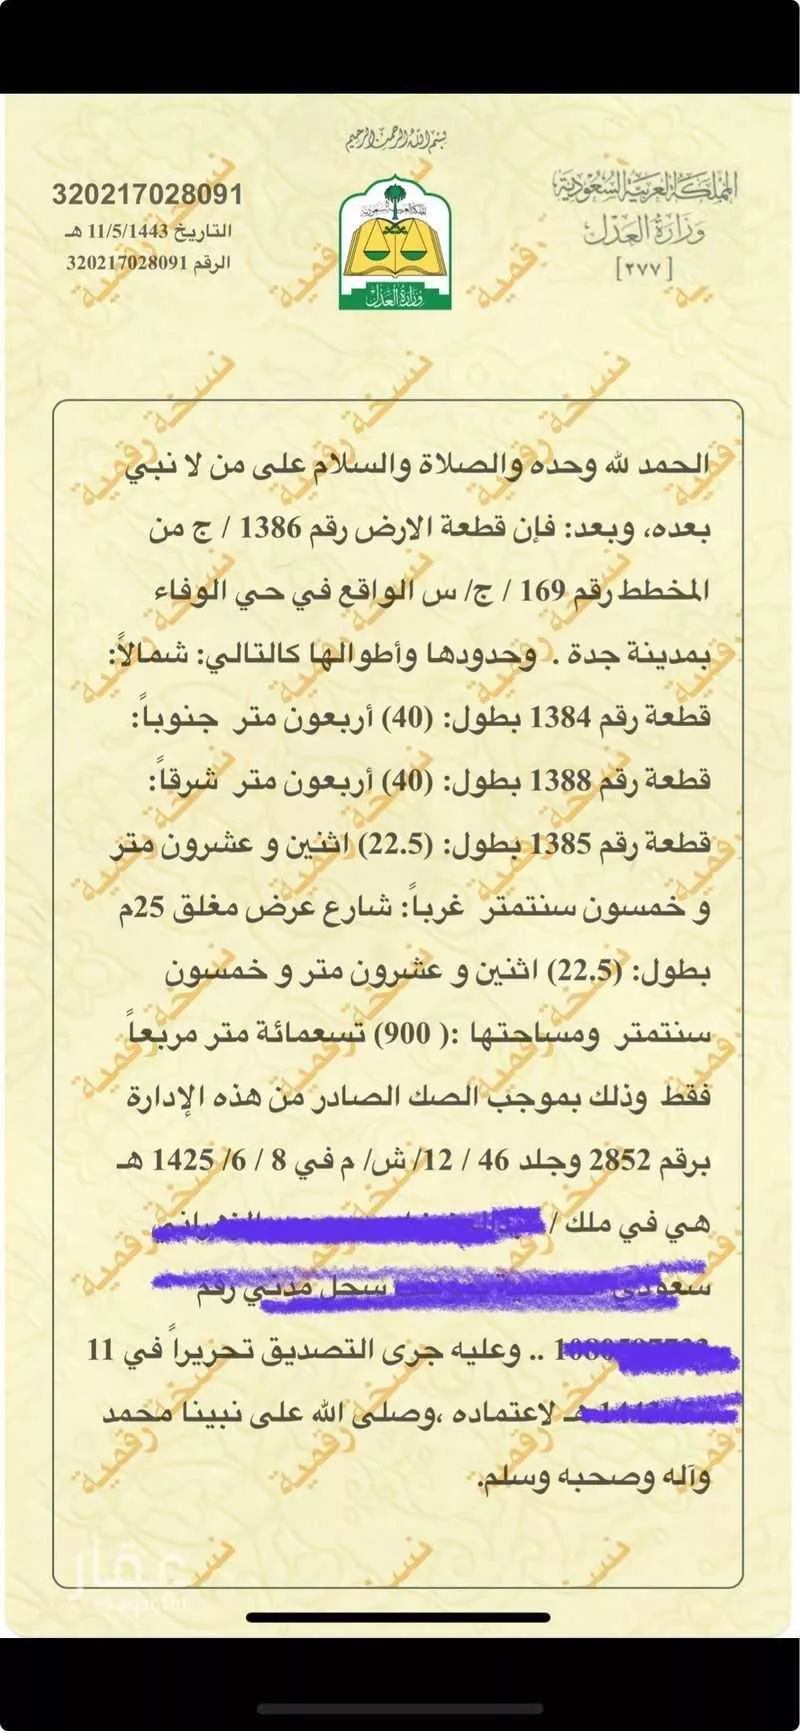 بسم الله الرحمن الرحيم
المملكة العربية السعودية
وزارة العدل
[٢٧٧]
320217028091
التاريخ 11/5/1443 هـ
الرقم 320217028091
وزارة العدل
الحمد لله وحده والصلاة والسلام على من لا نبي
بعده، وبعد: فإن قطعة الارض رقم 1386 / ج من
المخطط رقم 169 / ج/ س الواقع في حي الوفاء
بمدينة جدة . وحدودها وأطوالها كالتالي: شمالاً:
قطعة رقم 1384 بطول: (40) أربعون متر جنوباً:
قطعة رقم 1388 بطول: (40) أربعون متر شرقاً:
قطعة رقم 1385 بطول: (22.5) اثنين و عشرون متر
و خمسون سنتمتر غرباً: شارع عرض مغلق 25م
بطول: (22.5) اثنين و عشرون متر و خمسون
سنتمتر ومساحتها :( 900) تسعمائة متر مربعاً
فقط وذلك بموجب الصك الصادر من هذه الإدارة
برقم 2852 وجلد 46 / 12/ ش/ م في 8 / 6/ 1425 هـ
هي في ملك /
سعودي سجل مدني رقم
.. وعليه جرى التصديق تحريراً في 11
هـ لاعتماده ،وصلى الله على نبينا محمد
وآله وصحبه وسلم.
نسخة رقمية
عقار